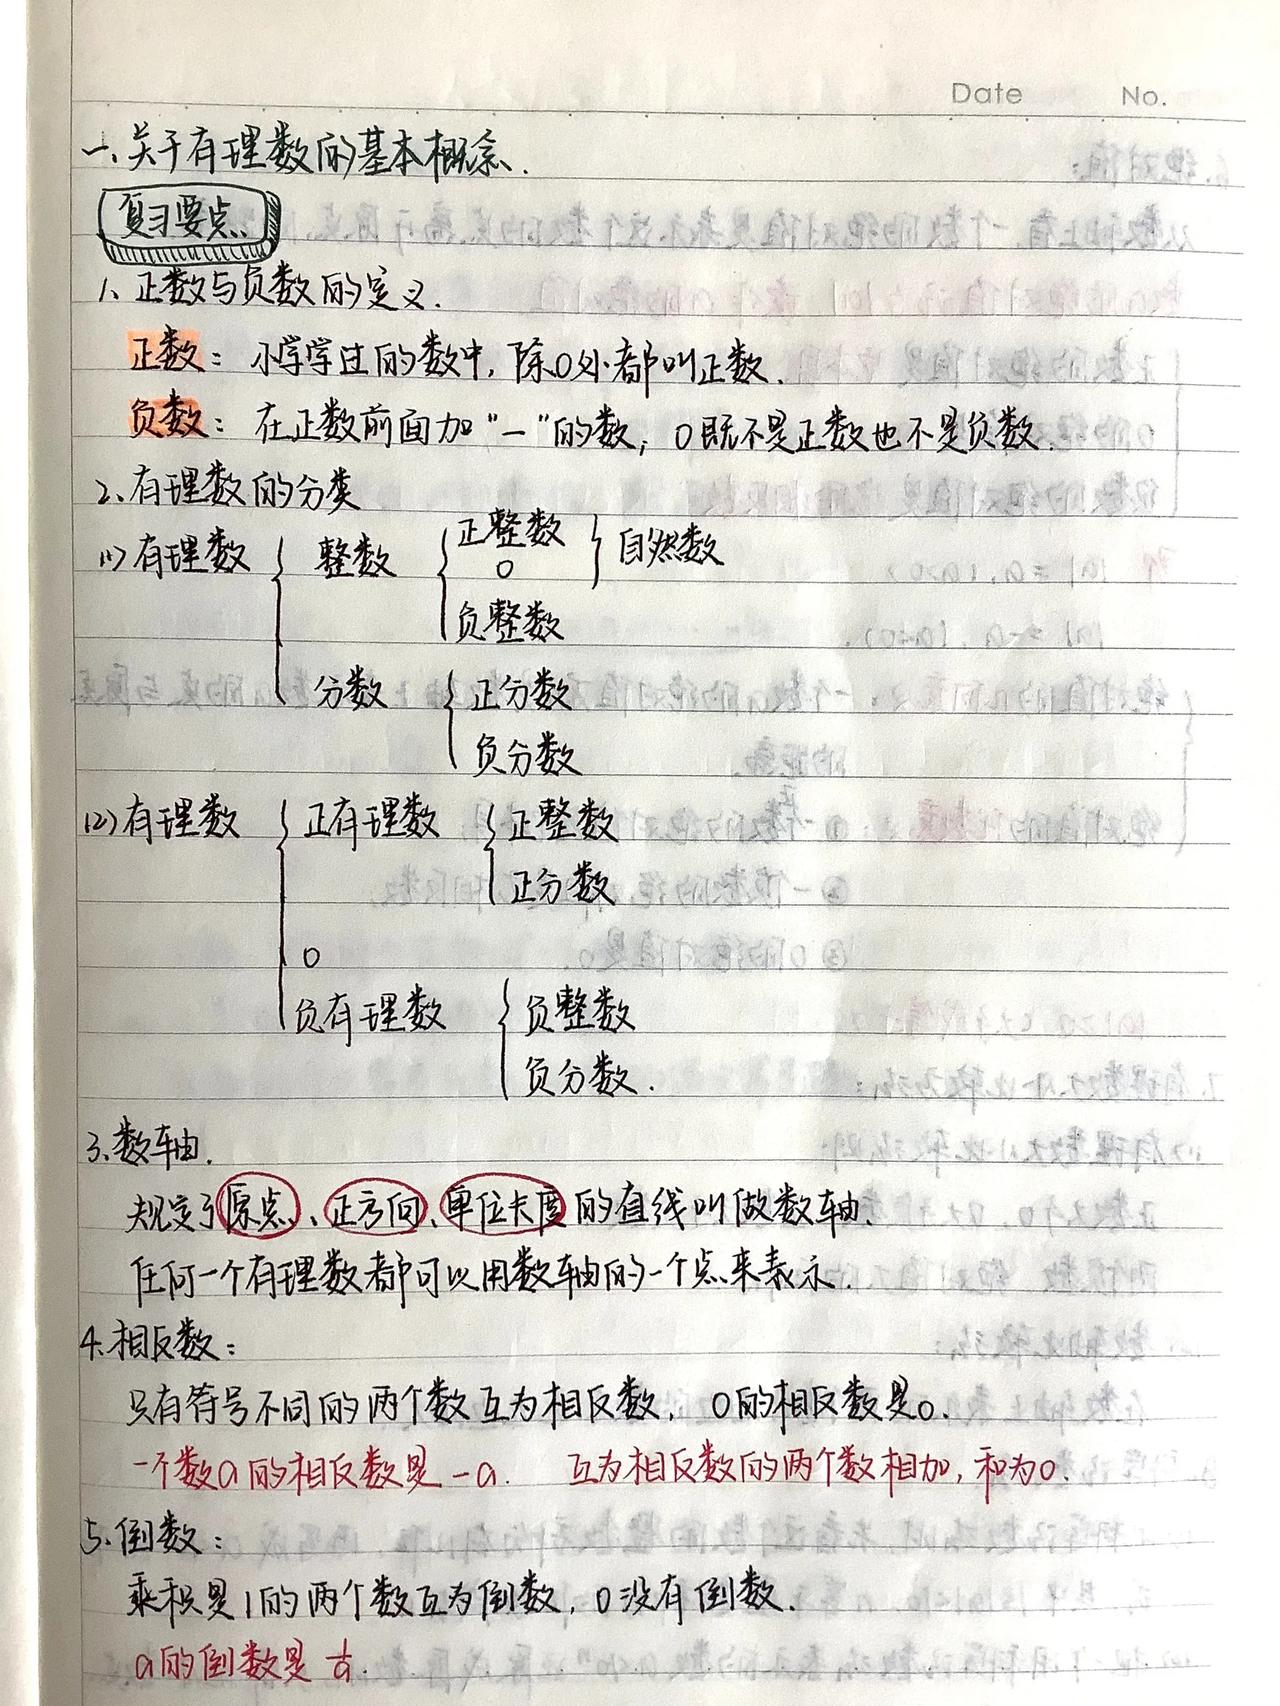 Date No.
一、关于有理数的基本概念.
复习要点.
1、正数与负数的定义.
正数：小学学过的数中，除0外都叫正数.
负数：在正数前面加"一"的数；0既不是正数也不是负数.
2、有理数的分类
(1)有理数 { 整数 { 正整数 } 自然数
0
负整数
分数 { 正分数
负分数
(2)有理数 { 正有理数 { 正整数
正分数
0
负有理数 { 负整数
负分数.
3、数轴.
规定了原点、正方向、单位长度的直线叫做数轴.
任何一个有理数都可以用数轴的一个点来表示.
4.相反数：
只有符号不同的两个数互为相反数，0的相反数是0.
一个数a的相反数是-a. 互为相反数的两个数相加，和为0.
5.倒数：
乘积是1的两个数互为倒数，0没有倒数.
a的倒数是1/a.